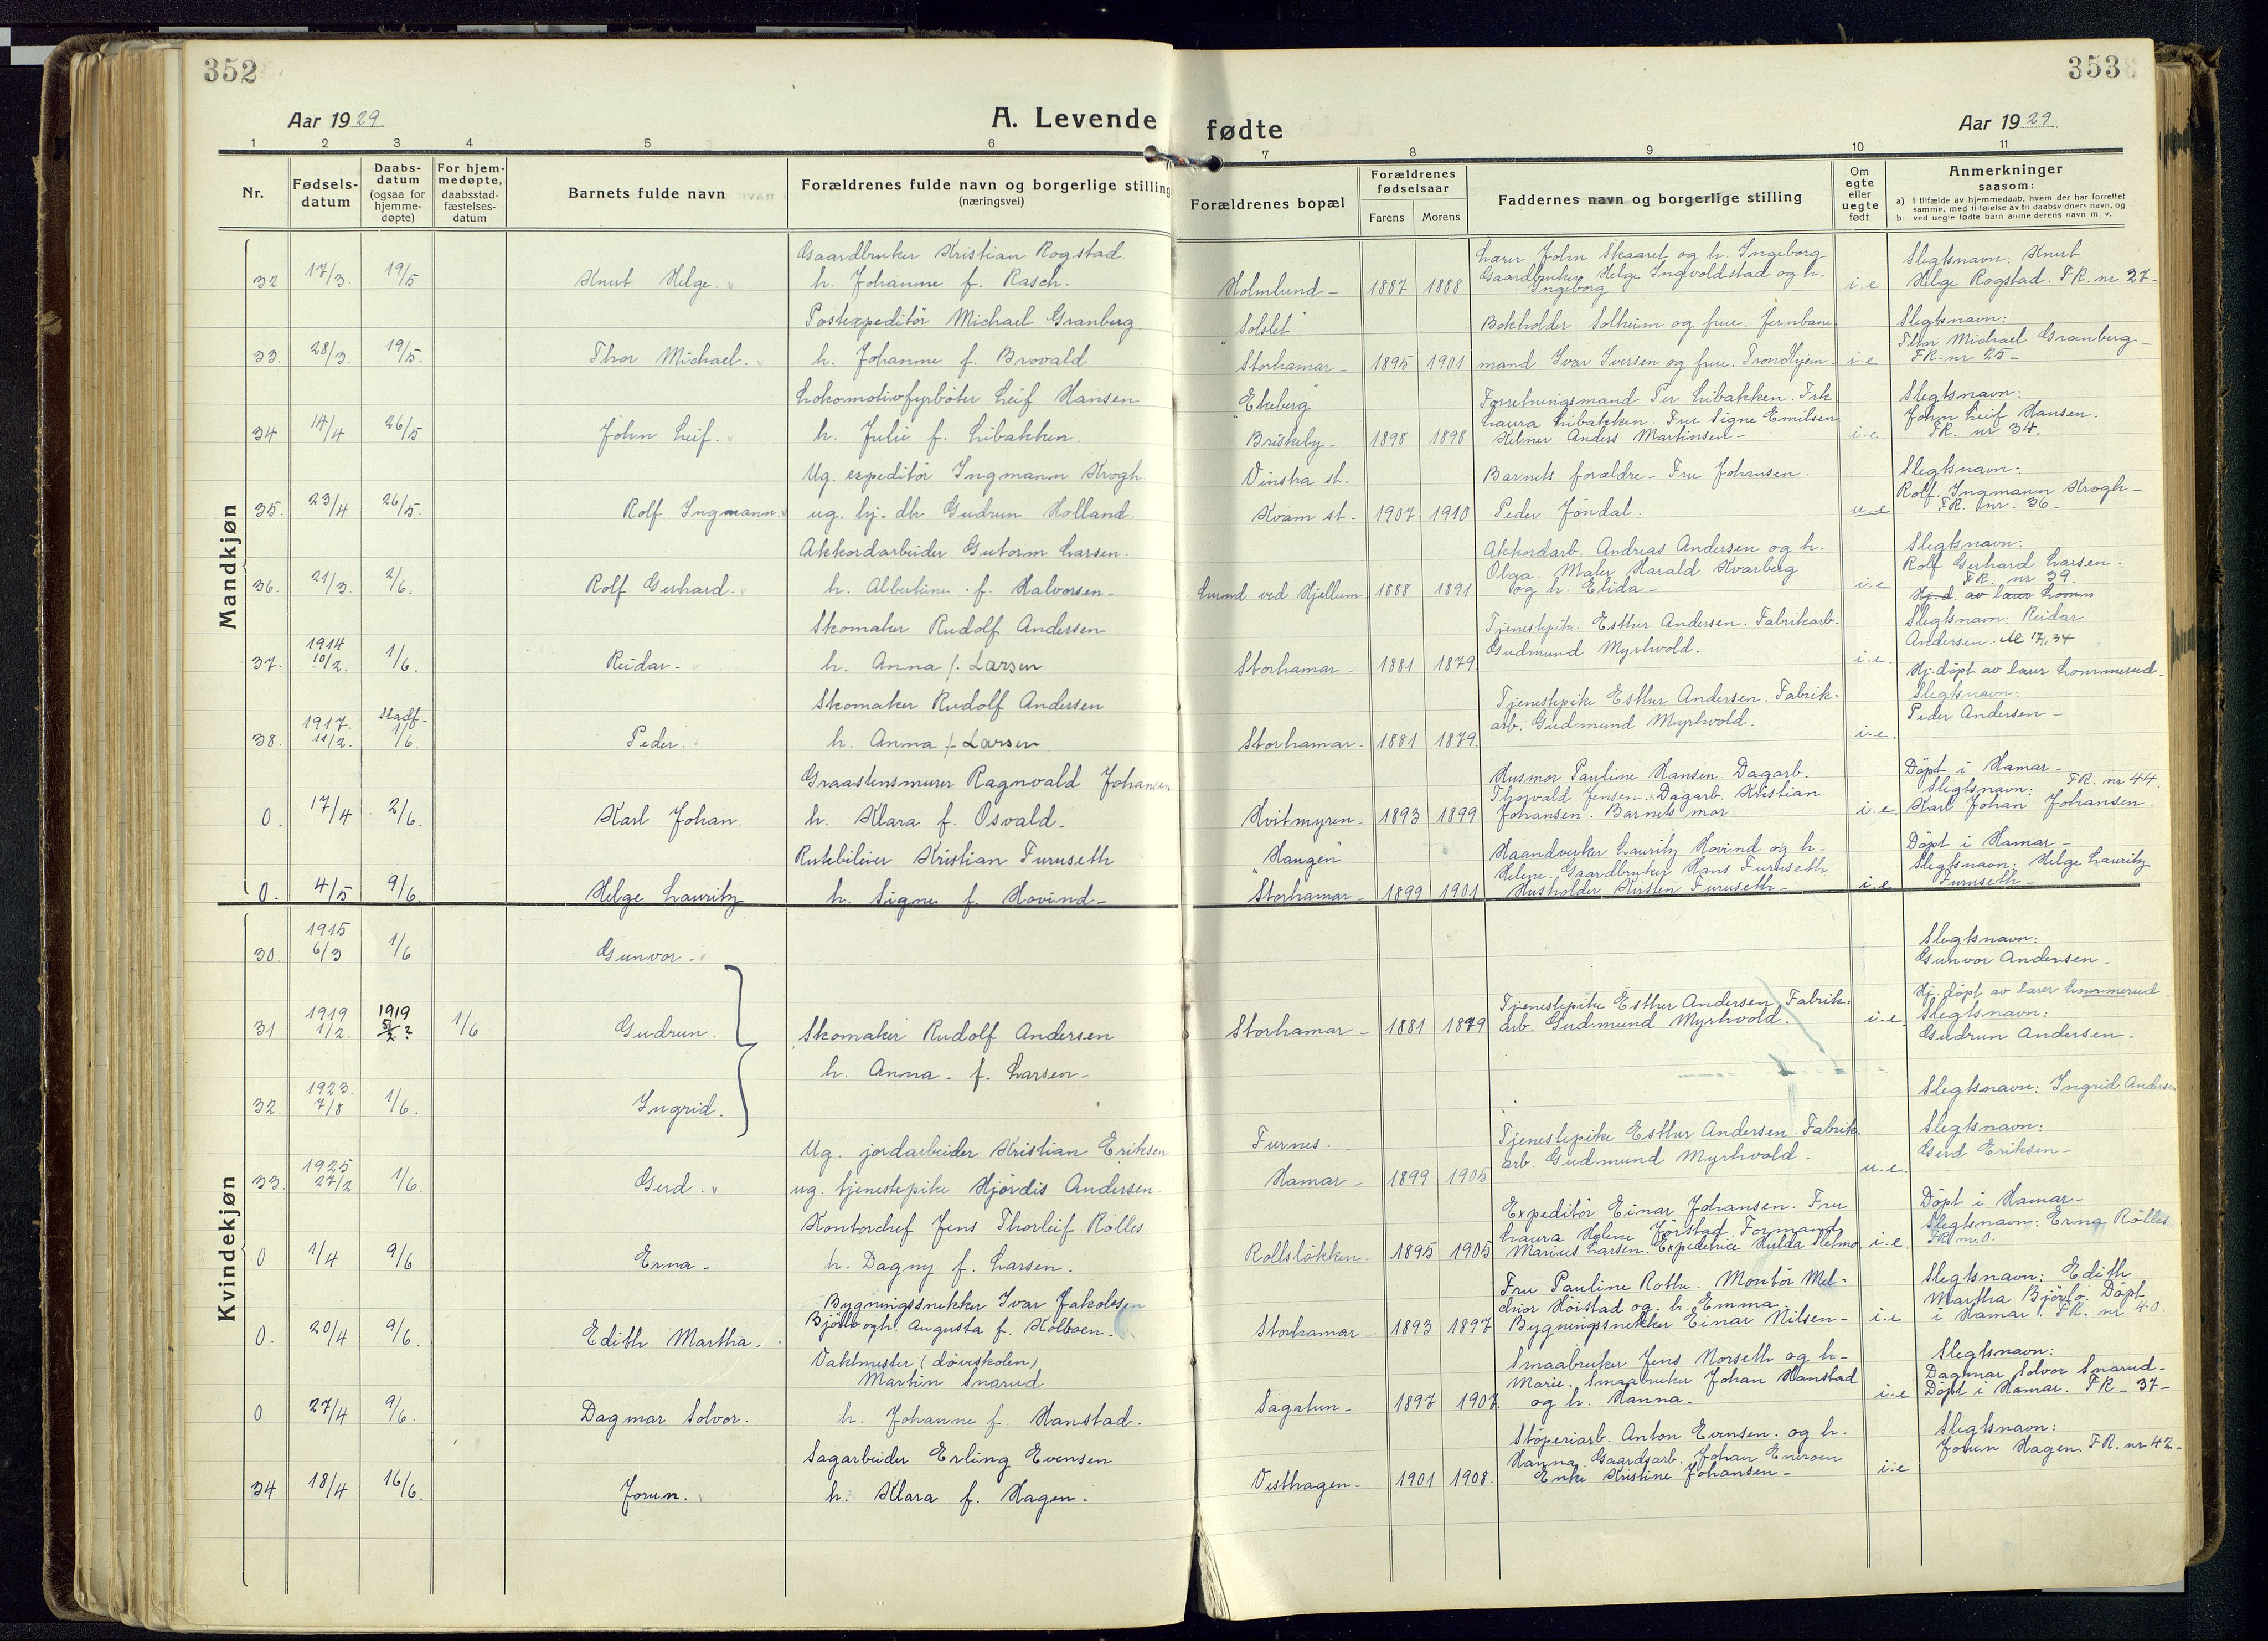 352
353
Aar 1929.
A. Levende fødte
Aar 1929.
1 2 3 4 5 6 7 8 9 10 11
Nr.
Fødsels-datum
Daabs-datum (ogsaa for hjemme-døpte)
For hjem-medøpte, daabsstad-fæstelses-datum
Barnets fulde navn
Forældrenes fulde navn og borgerlige stilling (næringsvei)
Forældrenes bopæl
Forældrenes fødselsaar
Farens
Morens
Faddernes navn og borgerlige stilling
Om egte eller uegte født
Anmerkninger saasom:
a) i tilfælde av hjemmedaab, hvem der har forrettet
samme, med tilføielse av to daabsvidners navn, og
b) ved uegte fødte barn anføre derens navn m. v.
Mandkjøn
Gaardbruker Kristian Rogstad.
32 17/3. 19/5 Knut Helge. h. Johanne f. Rasch.
Holmlund - 1887 1888
Lærer John Skaaret og h. Ingeborg
Gaardbruker Helge Ingvoldstad og h.
Ingeborg
i.e
Slegtsnavn: Knut
Helge Rogstad. F.R. nr 27-
Postexpeditör Michael Granberg
33. 28/3. 19/5. Thor Michael. h. Johanne f. Brovald.
"Solslet"
Storhamar - 1895 1901
Bokholder Solheim og frue. Jernbane
mand Ivar Iversen og frue. Trondhjem -
i-e
Slegtsnavn:
Thor Michael Granberg -
F.R. nr 25-
Lokomotivfyrböter Leif Hansen
34 14/4 26/5 John Leif. h. Julie f. Libakken.
"Ekeberg"
Briskeby - 1898 1898
Forretningsmand Per Libakken. Frk
Laura Libakken. Fru Signe Emilsen
Kelner Anders Martinsen -
i-e
Slegtsnavn:
John Leif Hansen.
F.R. nr 34.
Ug. expeditör Ingmann Krogh
35. 23/4 26/5. Rolf Ingmann. ug. hj. dtr Gudrun Holland
Vinstra st.
Kvam st - 1907 1910
Barnets forældre - Fru Johansen.
Peder Jöndal.
u-e
Slegtsnavn:
Rolf Ingmann Krogh -
F.R. nr. 36-
Akkordarbeider Gutorm Larsen.
36. 21/3. 2/6. Rolf Gerhard. h. Albertine f. Halvorsen -
Lund ved Hjellum 1888 1891
Akkordarb. Andreas Andersen og h.
Olga. Maler Harald Kvarberg
og h. Elida -
i.e
Slegtsnavn:
Rolf Gerhard Larsen.
F.R. nr 39.
Hj.d. av lærer Lomm
Skomaker Rudolf Andersen
37. 1914 10/2. 1/6. Reidar - h. Anna f. Larsen
Storhamar - 1881 1879
Tjenestepike Esther Andersen. Fabrikarb.
Gudmund Myrhvold.
i.e.
Slegtsnavn: Reidar
Andersen. Al 17/1 34
Hj. döpt av lærer Lommerud -
Skomaker Rudolf Andersen
38. 1917. 11/2. Stadf. 1/6. Peder. h. Anna f. Larsen
Storhamar - 1881 1879.
Tjenestepike Esther Andersen. Fabrik-
arb. Gudmund Myrhvold.
i.e.
Slegtsnavn:
Peder Andersen -
Graastensmurer Ragnvald Johansen
0. 17/4 2/6. Karl Johan. h. Klara f. Osvald.
Kvitmyren - 1893 1899
Husmor Pauline Hansen. Dagarb.
Thorvald Jensen. Dagarb. Kristian
Johansen. Barnets mor
i.e.
Döpt i Hamar -
Slegtsnavn: F.R. nr 44.
Karl Johan Johansen
Rutebileier Kristian Furuseth
0. 4/5 9/6. Helge Lauritz h. Signe f. Hovind -
"Haugen"
Storhamar - 1899 1901
Haandverker Lauritz Hovind og h-
Helene. Gaardbruker Hans Furuseth
Husholder Kirsten Furuseth -
i.e
Döpt i Hamar -
Slegtsnavn: Helge Lauritz
Furuseth -
Kvindekjøn
30. 1915 6/3 1/6 Gunvor -
Slegtsnavn:
Gunvor Andersen -
31 1919 1/2. 1919 ? 1/6 Gudrun. Skomaker Rudolf Andersen
h. Anna. f. Larsen -
Storhamar - 1881 1879
Tjenestepike Esther Andersen, Fabrik-
arb. Gudmund Myrhvold.
i.e.
Hj. döpt av lærer Lommerud
Slegtsnavn:
Gudrun Andersen -
32. 1923. 7/8 1/6. Ingrid.
Slegtsnavn: Ingrid Andersen
Ug. jordarbeider Kristian Eriksen
33. 1925 27/2 1/6. Gerd. ug. tjenestepike Hjördis Andersen
Furnes.
Hamar - 1899 1905
Tjenestepike Esther Andersen. Fabrik
arb. Gudmund Myrhvold.
u.e.
Slegtsnavn:
Gerd Eriksen -
Kontorchef Jens Thorleif Rölles
0 1/4 9/6 Erna - h. Dagny f. Larsen.
Rollslökken - 1895 1905
Expeditör Einar Johansen. Fru
Laura Helene Jörstad. Formand
Marius Larsen. Expeditrice Hulda
i.e.
Döpt i Hamar -
Slegtsnavn: Erna Rölles
F.R. nr. 0.
Bygningssnekker Ivar Jakobsen
0. 20/4 9/6. Edith Martha. Björlo og h. Augusta f. Kolboen -
Storhamar - 1893 1897
Fru Pauline Rothe. Montör Mel-
chior Höistad og h. Emma.
Bygningssnekker Einar Nilsen -
i.e
Slegtsnavn: Edith
Martha Björlo. Döpt
i Hamar. F.R. nr 40.
Vaktmester (döveskolen)
Martin Snarud
0 27/4 9/6. Dagmar Solvor. h. Johanne f. Hanstad.
Sagatun - 1897 1907.
Smaabruker Jens Norseth og h-
Marie. Smaabruker Johan Hanstad
og h. Hanna.
i-e
Slegtsnavn:
Dagmar Solvor Snarud -
Döpt i Hamar. F.R - 37-
Sagarbeider Erling Evensen
34 18/4 16/6. Jorun. h. Klara f. Hagen -
Vesthagen - 1901 1908.
Stöperiarb. Anton Evensen. og h.
Hanna. Gaardsarb. Johan Eneroen
Enke Kristine Johansen -
i.e
Slegtsnavn:
Jorun Hagen. F.R. nr 42-